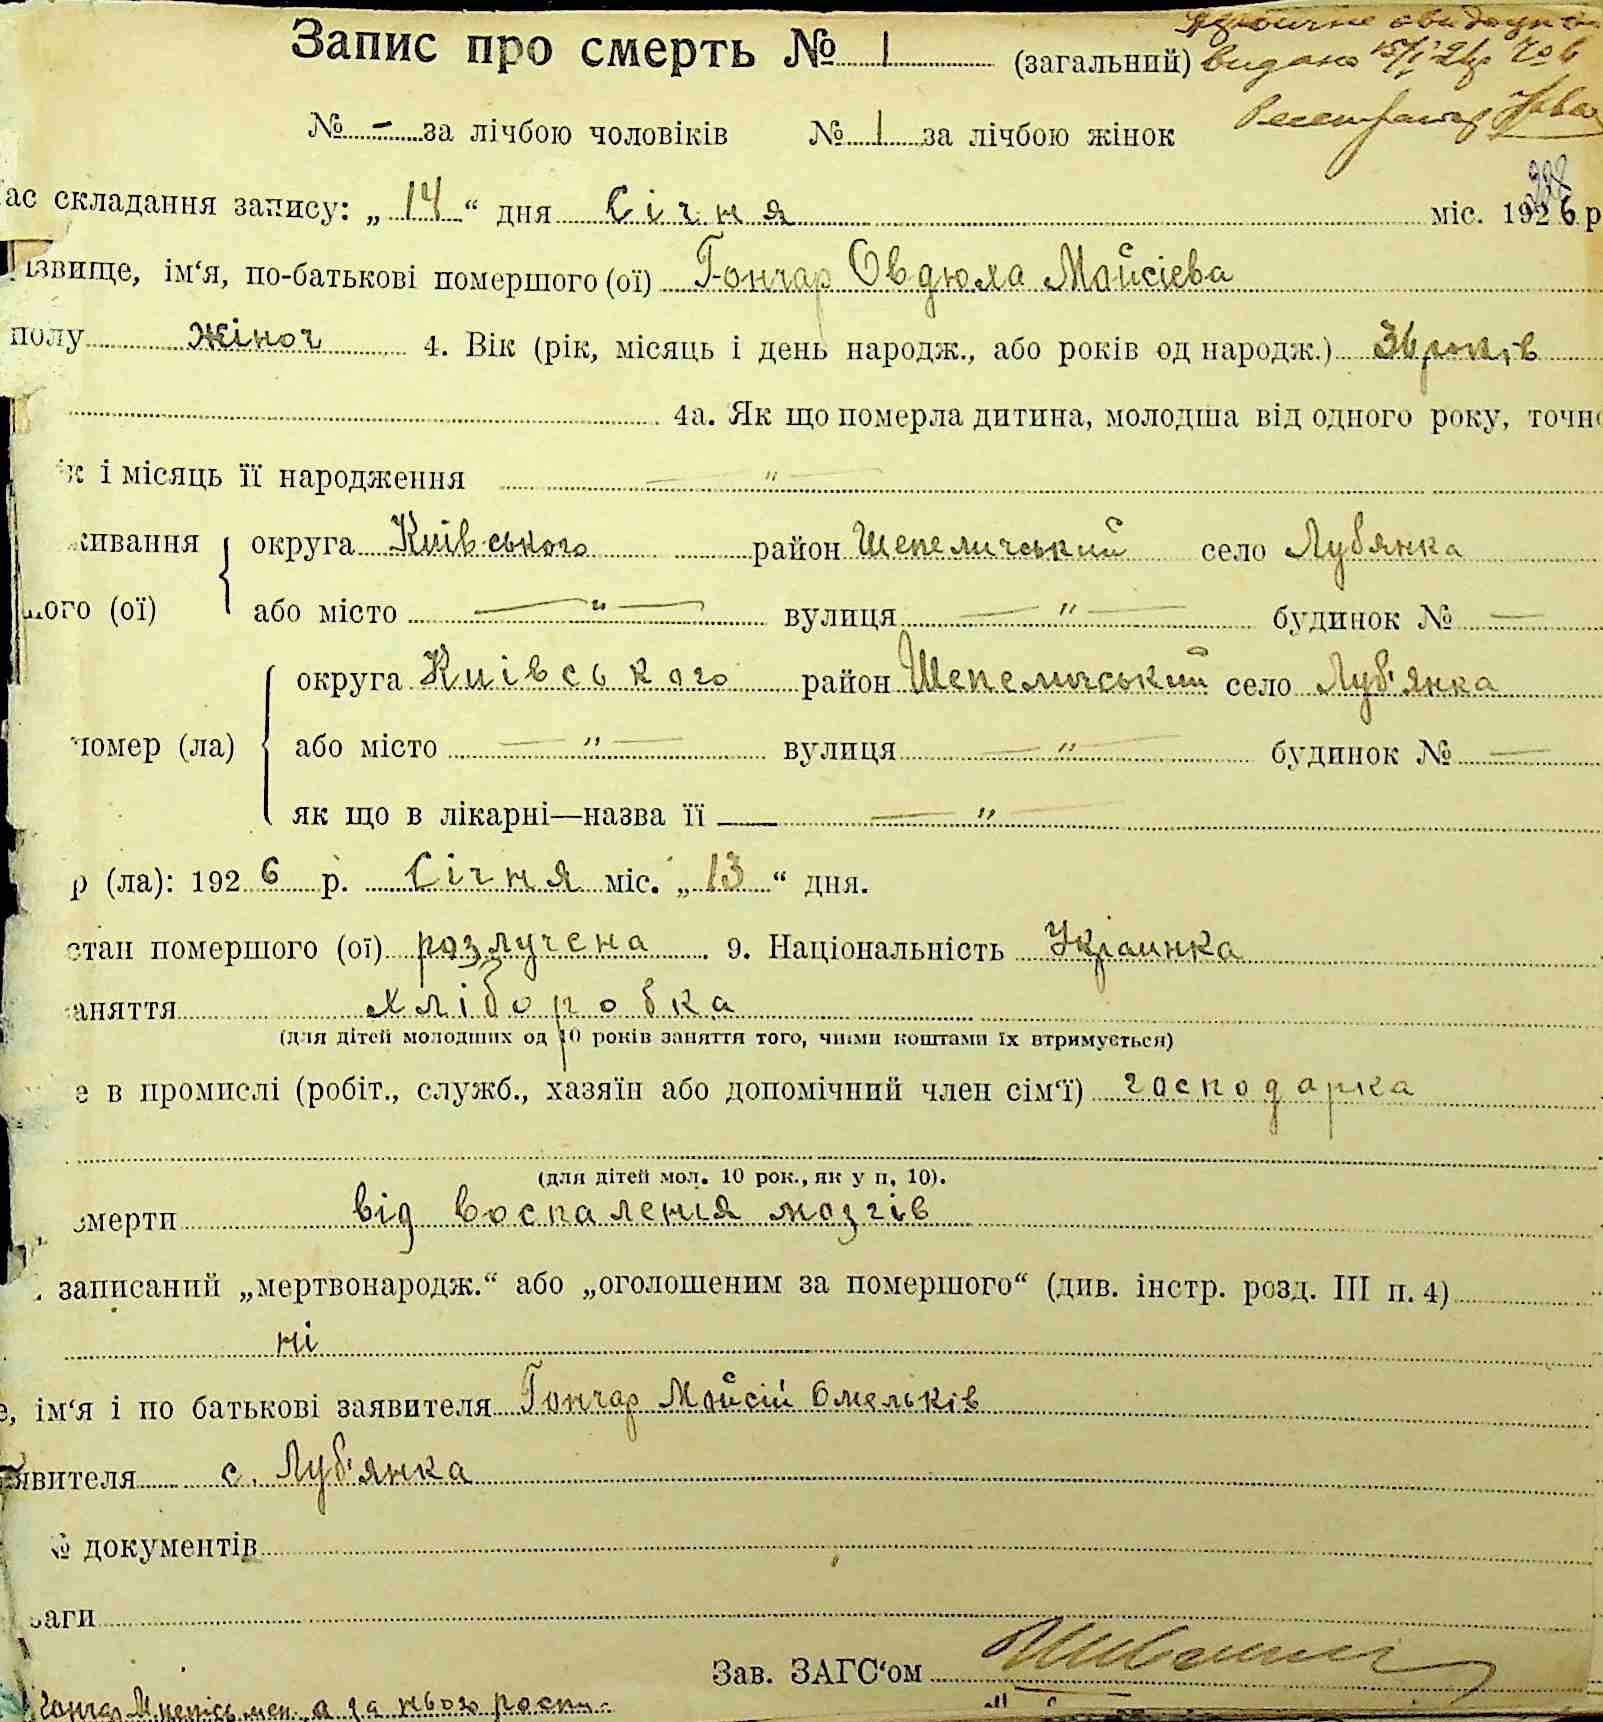 Запис про смерть № 1 (загальний)
видано 15/I 26р № 6
№ - за лічбою чоловіків № 1 за лічбою жінок
ас складання запису: „ 14 “ дня Січня міс. 1926 р
ізвище, ім‘я, по-батькові помершого (ої) Гончар Овдюла Мойсієва
полу жіноч 4. Вік (рік, місяць і день народж., або років од народж.) 36 років
4а. Як що померла дитина, молодша від одного року, точн
ік і місяць її народження — " —
живання округа Київського район Шепеличський село Лубянка
ого (ої) або місто — " — вулиця — " — будинок № —
округа Київського район Шепеличський село Луб'янка
помер (ла) або місто — " — вулиця — " — будинок № —
як що в лікарні—назва її — " —
р (ла): 1926 р. Січня міс. „ 13 “ дня.
стан помершого (ої) розлучена 9. Національність Украинка
аняття хліборобка
(для дітей молодших од 10 років заняття того, чиїми коштами їх втримується)
е в промислі (робіт., служб., хазяїн або допомічний член сім‘ї) господарка
(для дітей мол. 10 рок., як у п. 10).
смерти від воспаленія мозгів
записаний „мертвонародж.“ або „оголошеним за помершого“ (див. інстр. розд. III п. 4)
ні
е, ім‘я і по батькові заявителя Гончар Мойсій Омельків
явителя с. Луб'янка
№ документів
ваги
Зав. ЗАГС‘ом
Гончар М неписьмен. а за нього